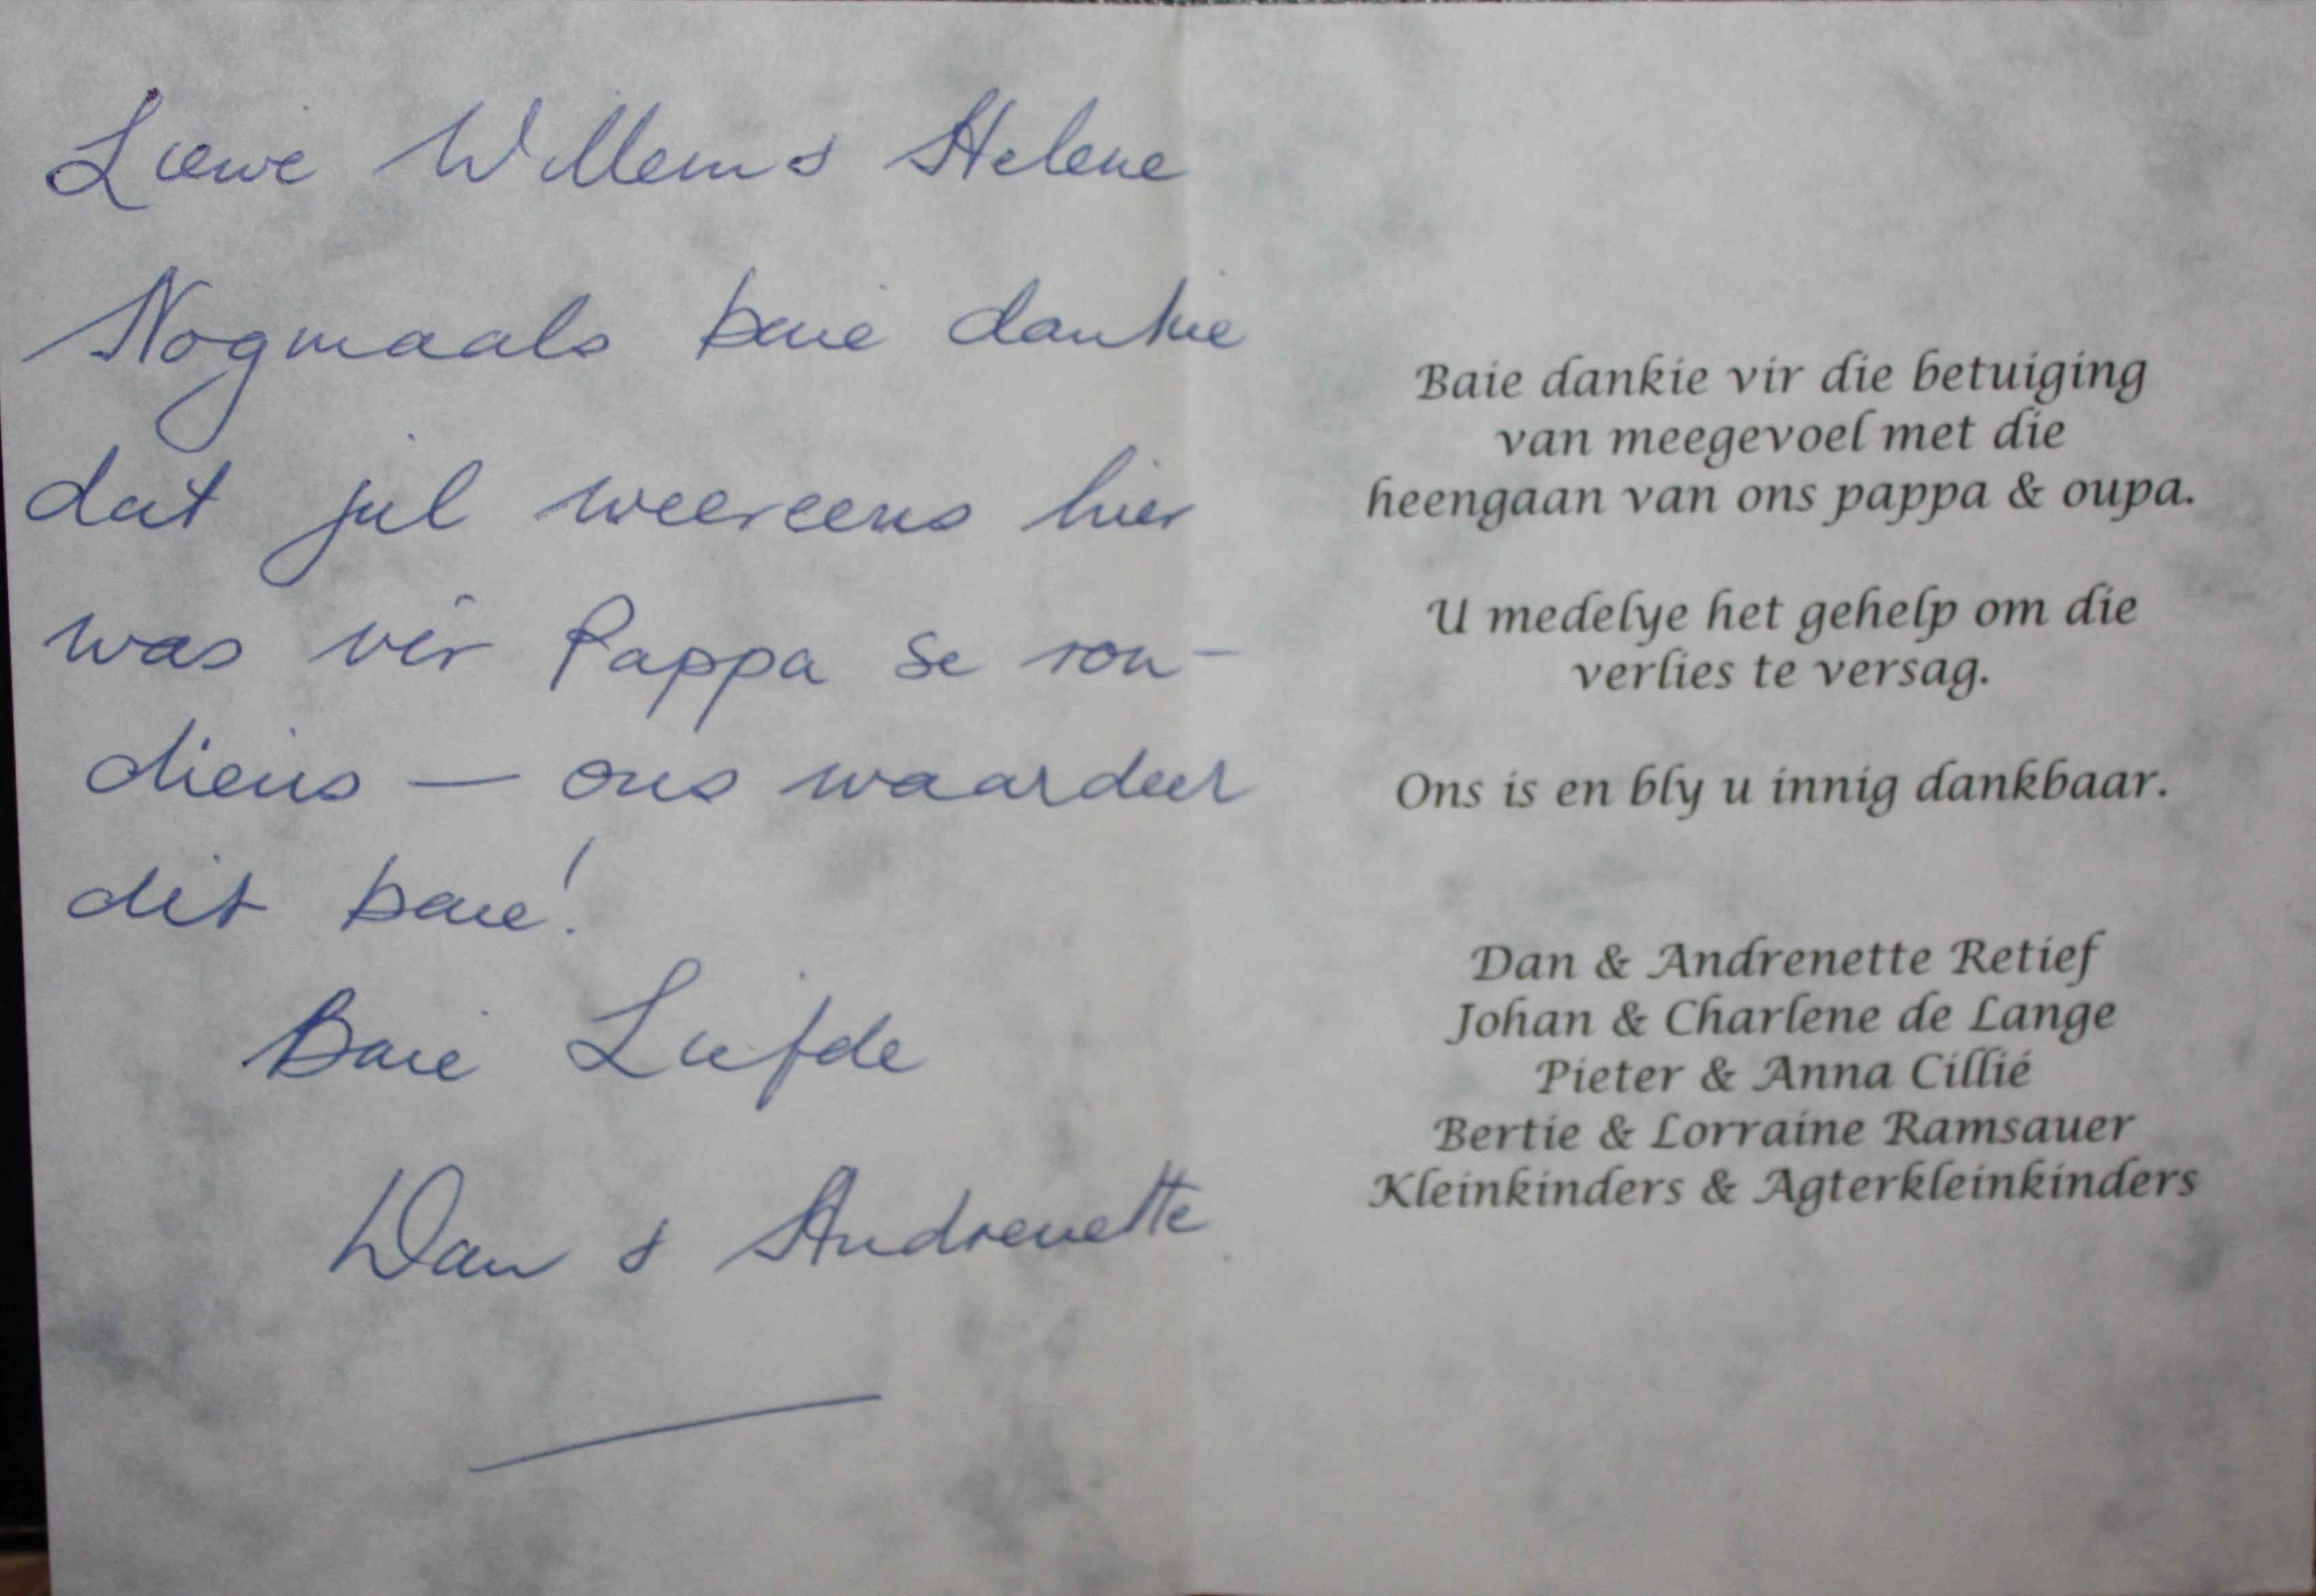 Liewe Willem & Helene
Nogmaals baie dankie
dat jul weereens hier
was vir Pappa se rou-
diens — ons waardeer
dit baie!
Baie Liefde
Dan & Andrenette
Baie dankie vir die betuiging
van meegevoel met die
heengaan van ons pappa & oupa.
U medelye het gehelp om die
verlies te versag.
Ons is en bly u innig dankbaar.
Dan & Andrenette Retief
Johan & Charlene de Lange
Pieter & Anna Cillié
Bertie & Lorraine Ramsauer
Kleinkinders & Agterkleinkinders